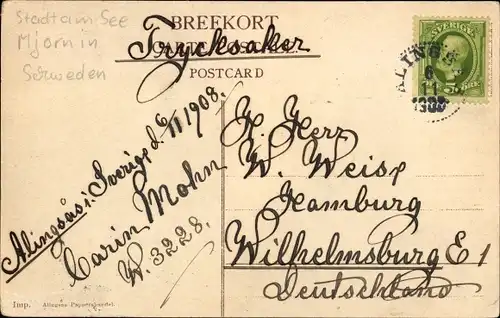 Stadt am See
Mjörn in
Schweden
BREFKORT
Trycksaker
POSTCARD
SVERIGE
5 ÖRE
ALINGSÅS
6
11
1908
Alingsås i Sverige d. 6/11 1908.
Carin Mohn
W. 3228.
H. Herr
W. Weise
Hamburg
Wilhelmsburg E 1
Deutschland
Imp. Alingsås Pappershandel.